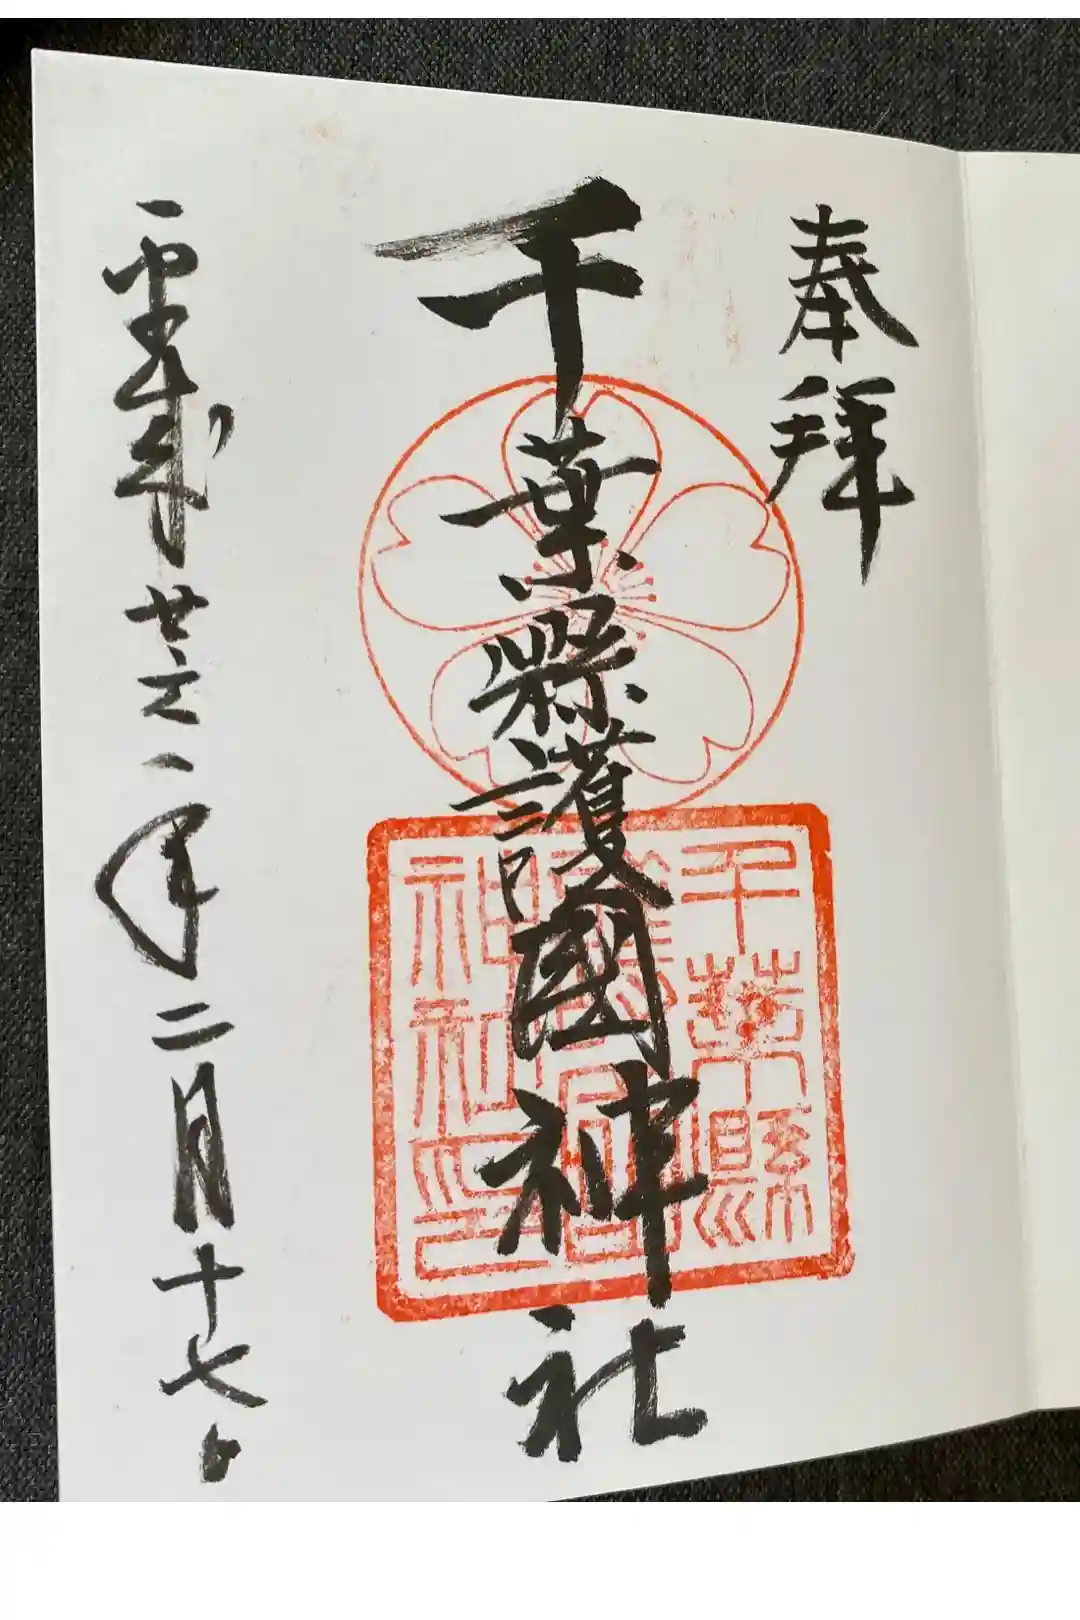 奉拝
千葉縣護國神社
平成廿六年二月十七日
千葉縣
神社印